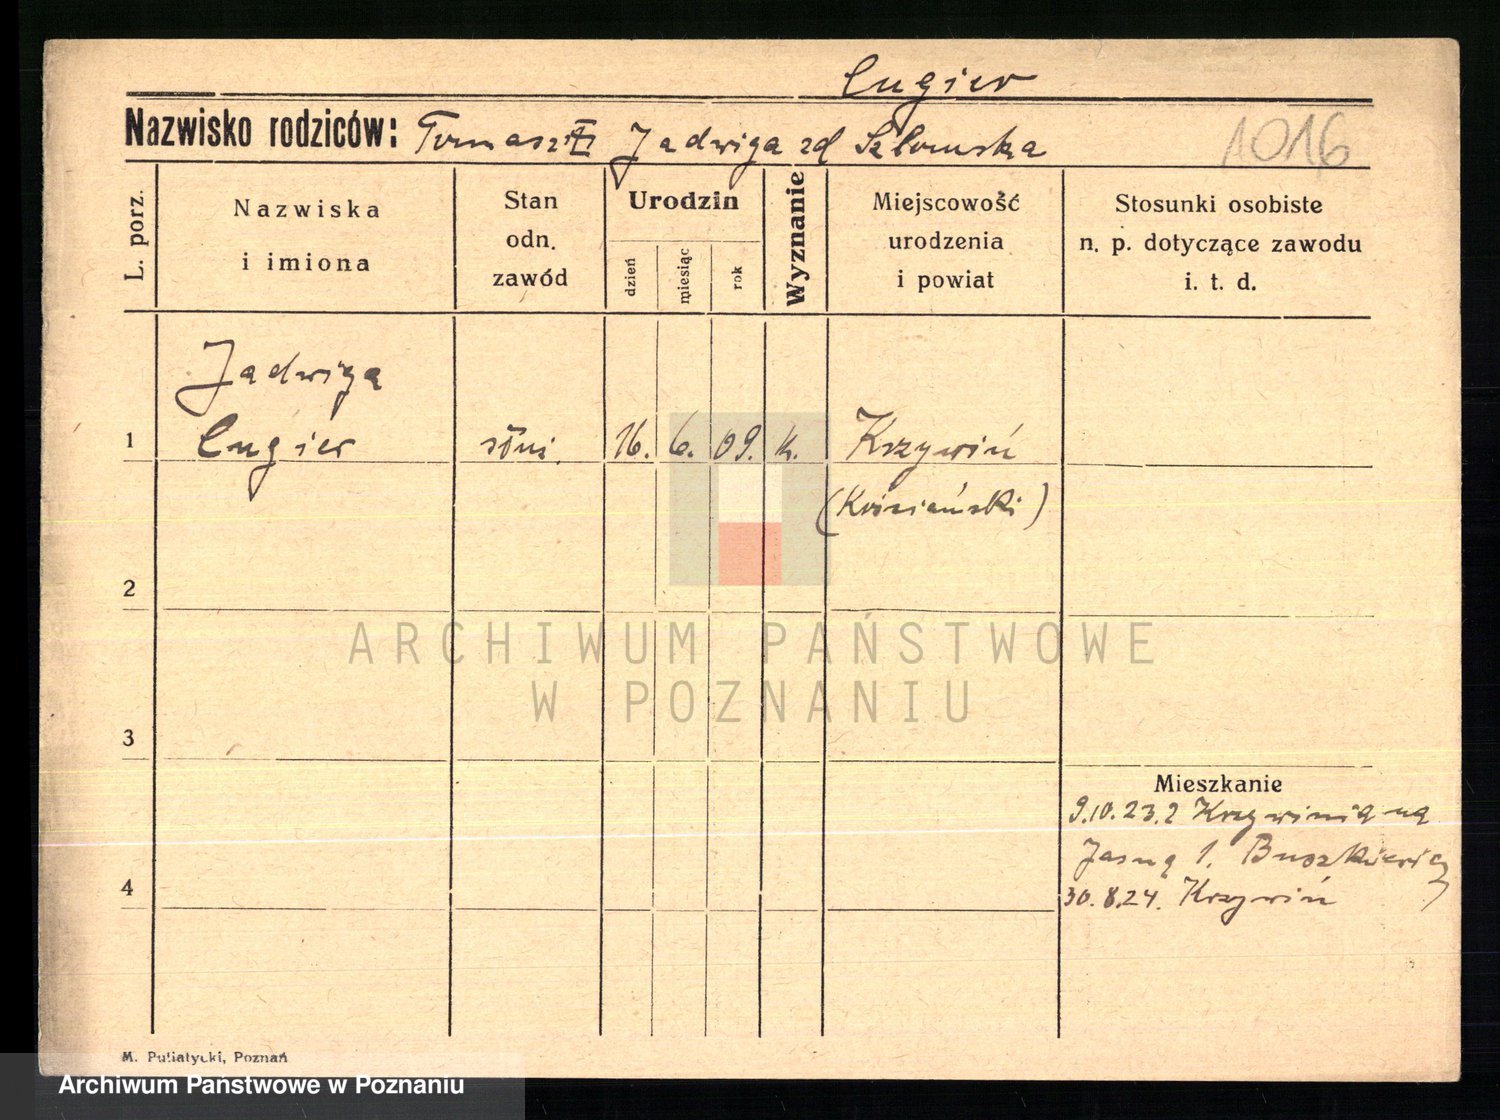 Cugier
Nazwisko rodziców: Tomasz Jadwiga zd Szlomska
1016
L. porz.
Nazwiska
i imiona
Stan
odn.
zawód
Urodzin
dzień
miesiąc
rok
Wyznanie
Miejscowość
urodzenia
i powiat
Stosunki osobiste
n. p. dotyczące zawodu
i. t. d.
Jadwiga
1 Cugier 16. 6. 09. k. Krzywiń
(Kościański)
2
ARCHIWUM PAŃSTWOWE
W POZNANIU
3
Mieszkanie
9.10.23. z Krzywinia na
Jasną 1. Buszkiewicz
4
30.8.24. Krzywiń
M. Putiatycki, Poznań
Archiwum Państwowe w Poznaniu